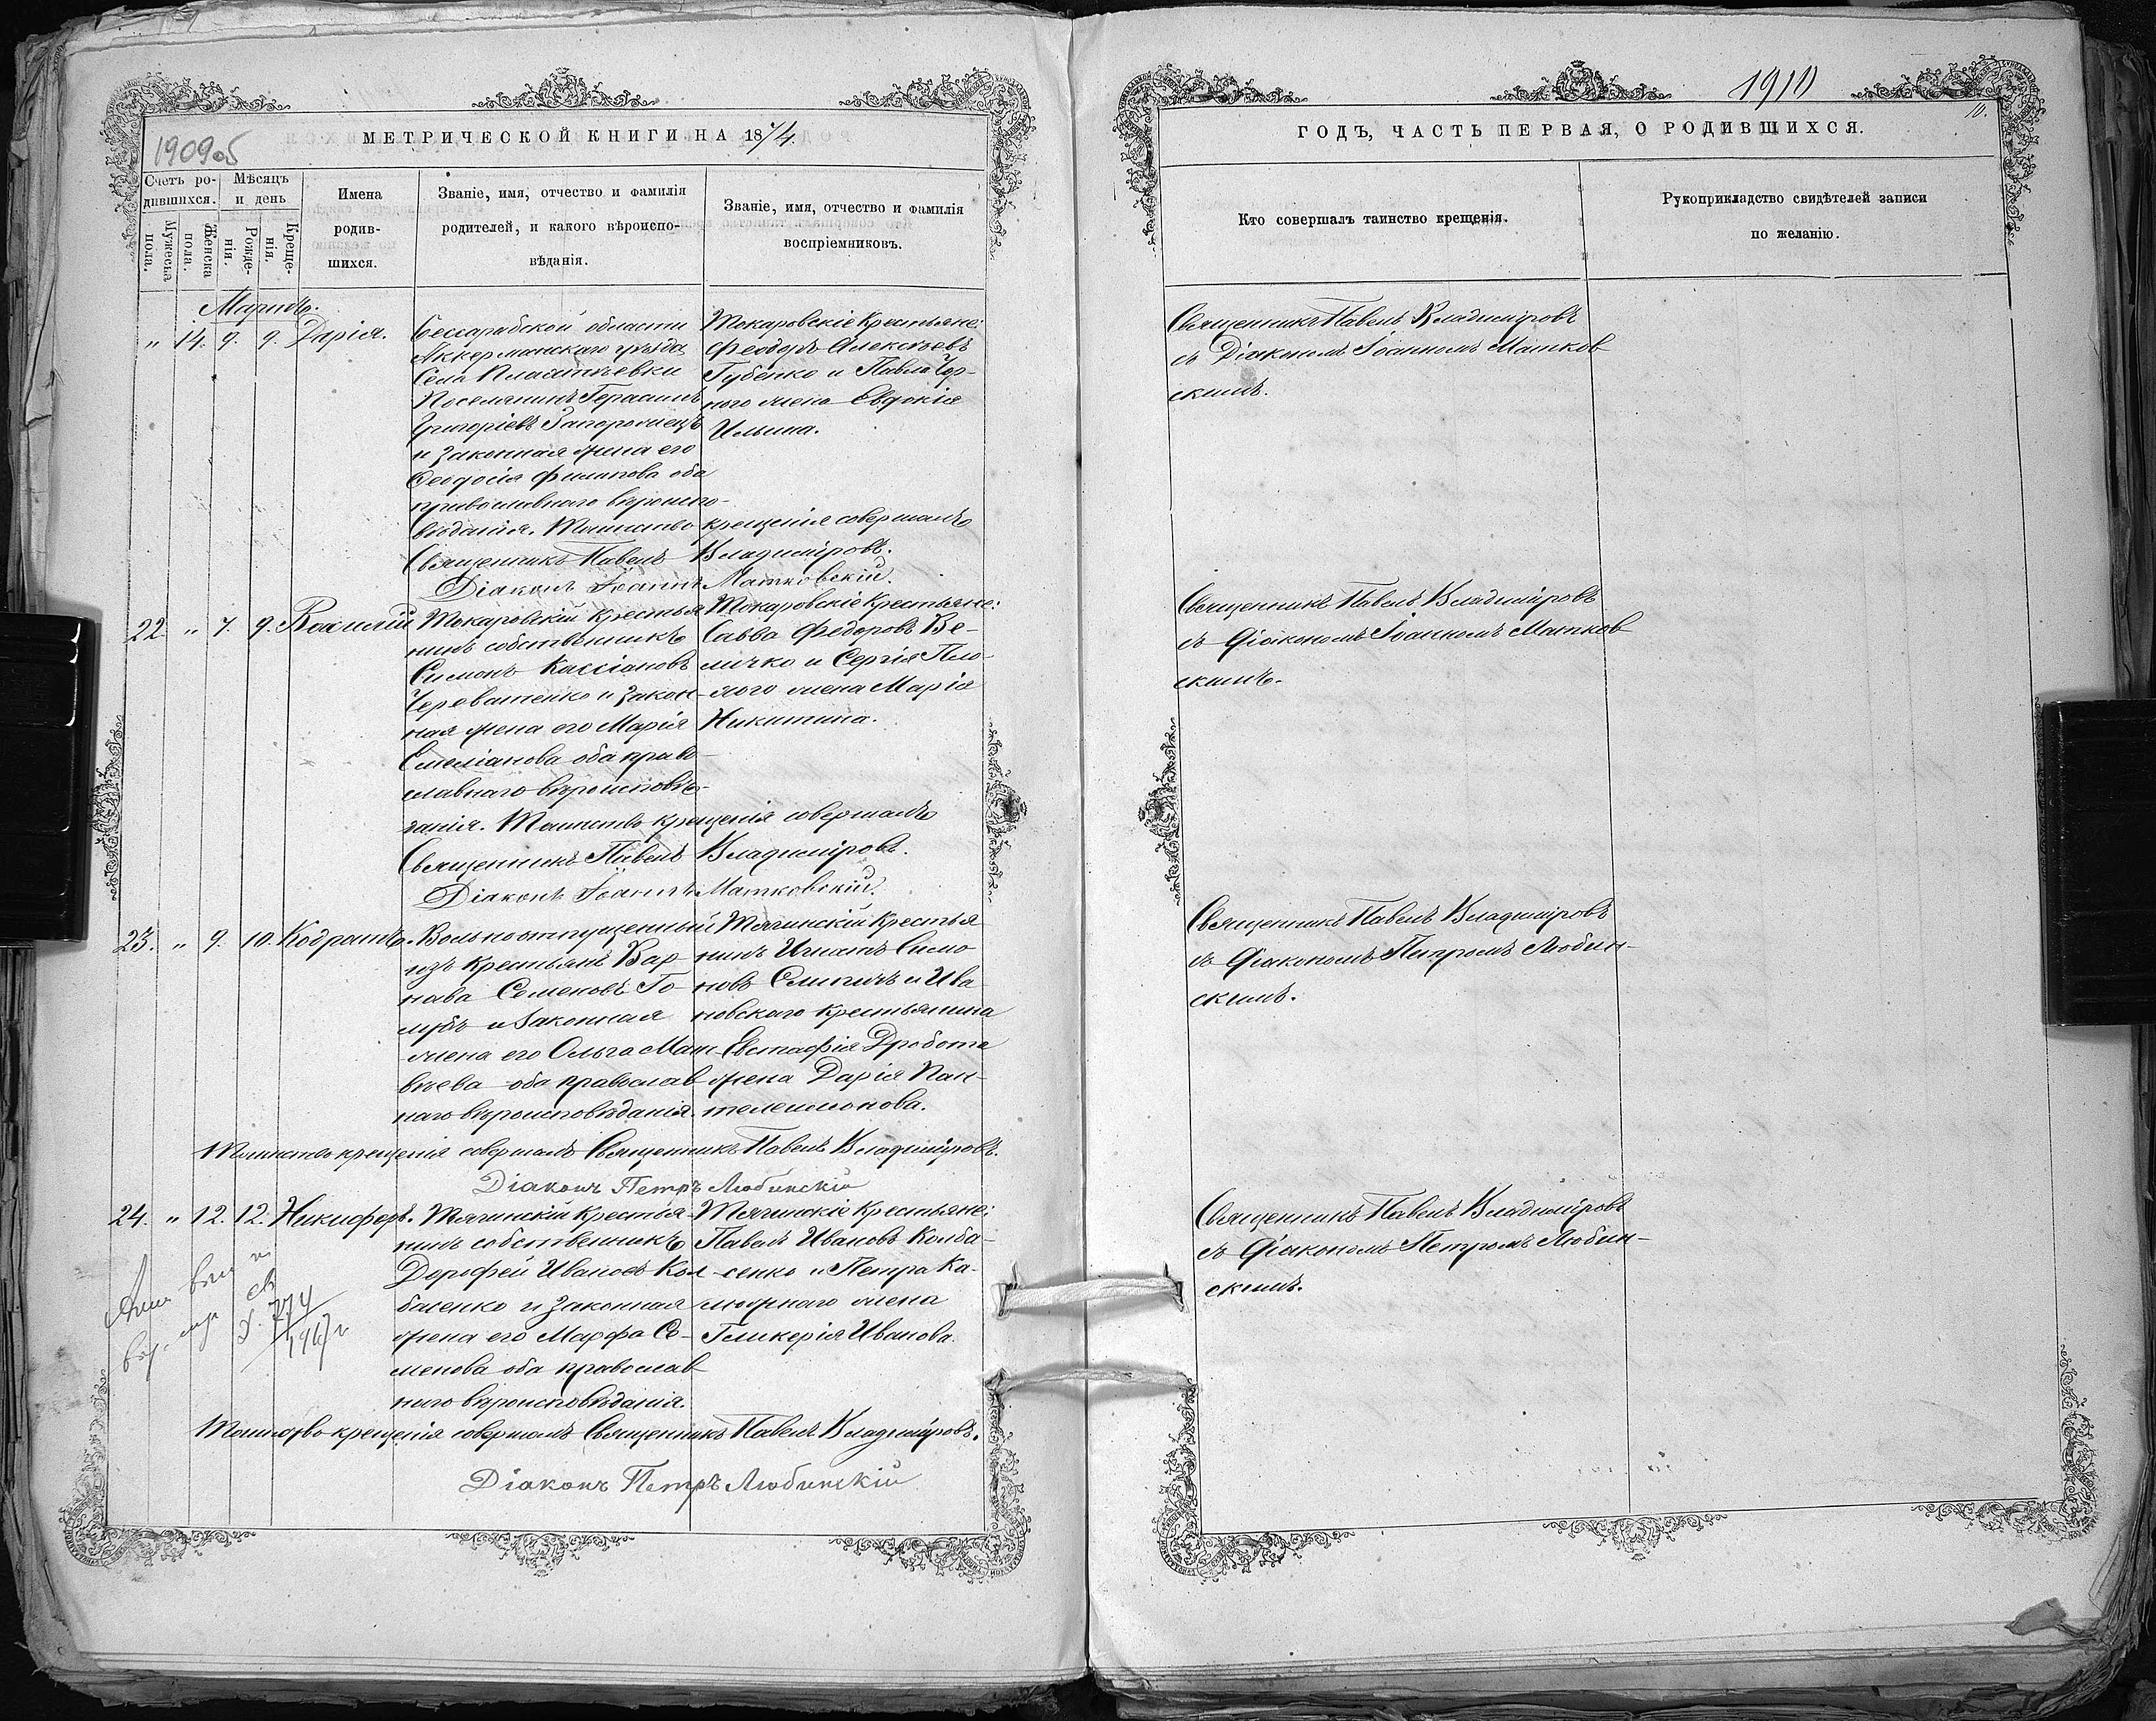 1909 об
МЕТРИЧЕСКОЙ КНИГИ НА 1874
Счетъ ро-
дившихся.
Мѣсяцъ
и день
Мужеска
пола.
Женска
пола.
Рожде-
нія.
Креще-
нія.
Имена
родив-
шихся.
Званіе, имя, отчество и фамилія
родителей, и какого вѣроиспо-
вѣданія.
Званіе, имя, отчество и фамилія
воспріемниковъ.
Мартъ.
„ 14. 9. 9. Дарія.
Бессарабской области
Аккерманскаго уѣзда
Села Плахтѣевки
Поселянинъ Герасимъ
Григоріевъ Запорожецъ
и законная жена его
Ѳеодосія Филипова оба
православнаго вѣроиспо-
вѣданія. Таинство крещенія совершалъ
Священникъ Павелъ Владиміровъ.
Діаконъ Іоаннъ Матковскій.
Токаровскіе Крестьяне:
Феодоръ Алексѣевъ
Губенко и Павла Чор-
ного жена Евдокія
Ильина.
22. „ 7. 9. Василій
Токаровскій Крестья
нинъ собственникъ
Симонъ Кассіановъ
Череватенко и закон-
ная жена его Марія
Емеліанова оба право-
славнаго вѣроисповѣ-
данія. Таинство крещенія совершалъ
Священникъ Павелъ Владиміровъ.
Діаконъ Іоаннъ Матковскій.
Токаровскіе Крестьяне:
Савва Федоровъ Ве-
личко и Сергія
жена Марія
Никитина.
23. „ 9. 10. Кодратъ.
Вольноотпущенный
изъ крестьянъ Вар-
нава Семеновъ Го-
лубъ и Законная
жена его Ольга Мат-
вѣева оба православ-
наго вѣроисповѣданія.
Тягинскій Крестья
нинъ Игнатъ Симо
новъ и Ива
новскаго крестьянина
Евстафія Дробота
жена Дарія Пан-
телеимонова.
Таинство крещенія совершалъ Священникъ Павелъ Владиміровъ.
Діаконъ Петръ Любинскій
24. „ 12. 12. Никифоръ.
Тягинскій Крестья-
нинъ собственникъ
Дорофей Ивановъ Кол-
басенко и Законная
жена его Марфа Се-
менова оба православ-
наго вѣроисповѣданія.
Тягинскіе Крестьяне:
Павелъ Ивановъ Колба-
сенко и Петра Ка-
жена
Гликерія Иванова.
Таинство крещенія совершалъ Священникъ Павелъ Владиміровъ.
Діаконъ Петръ Любинскій
1910
10.
ГОДЪ, ЧАСТЬ ПЕРВАЯ, О РОДИВШИХСЯ.
Кто совершалъ таинство крещенія.
Рукоприкладство свидѣтелей записи
по желанію.
Священникъ Павелъ Владиміровъ
съ Діакономъ Іоанномъ Матков
скимъ.
Священникъ Павелъ Владиміровъ
съ Діакономъ Іоанномъ Матков
скимъ.
Священникъ Павелъ Владиміровъ
съ Діакономъ Петромъ Любин-
скимъ.
Священникъ Павелъ Владиміровъ
съ Діакономъ Петромъ Любин-
скимъ.